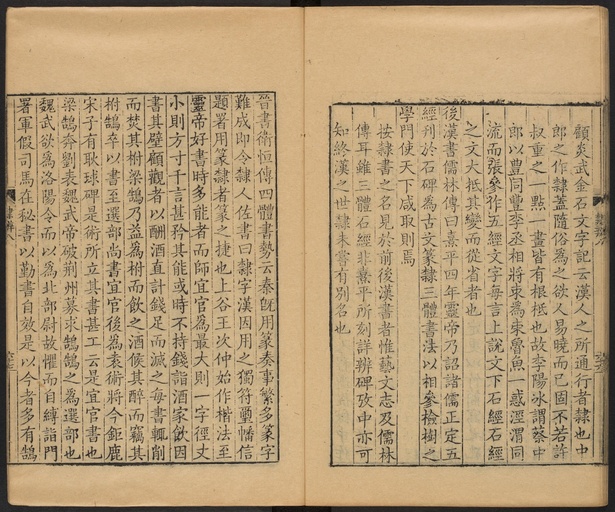 顧炎武金石文字記云漢人之所通行者隸也中
郎之作隸蓋隨俗爲之欲人易曉而已固不若許
叔重之一點一畫皆有根柢也故李陽冰謂蔡中
郎以豊同豐李丞相將束爲宋魯魚一惑涇渭同
流而張參作五經文字毎言上說文下石經石經
之文大抵其變而從省者也
後漢書儒林傳曰熹平四年靈帝乃詔諸儒正定五
經刋於石碑爲古文篆隸三體書法以相參檢樹之
學門使天下咸取則焉
按隸書之名見於前後漢書者惟藝文志及儒林
傳耳雖三體石經非熹平所刻詳辨碑攷中亦可
知終漢之世隸未嘗有別名也
晉書衛恒傳四體書勢云秦旣用篆奏事繁多篆字
難成卽令隸人佐書曰隸字漢因用之獨符璽幡信
題署用篆隸者篆之捷也上谷王次仲始作楷法至
靈帝好書時多能者而師宜官爲最大則一字徑丈
小則方寸千言甚矜其能或時不持錢詣酒家飮因
書其壁顧觀者以酬酒直計錢足而滅之每書輒削
而焚其柎梁鵠乃益爲柎而飮之酒候其醉而竊其
柎鵠卒以書至選部尙書宜官後爲袁術將今鉅鹿
宋子有耿球碑是術所立其書甚工云是宜官書也
梁鵠奔劉表魏武帝破荆州募求鵠鵠之爲選部也
魏武欲爲洛陽令而以爲北部尉故懼而自縛詣門
署軍假司馬在秘書以勤書自效是以今者多有鵠